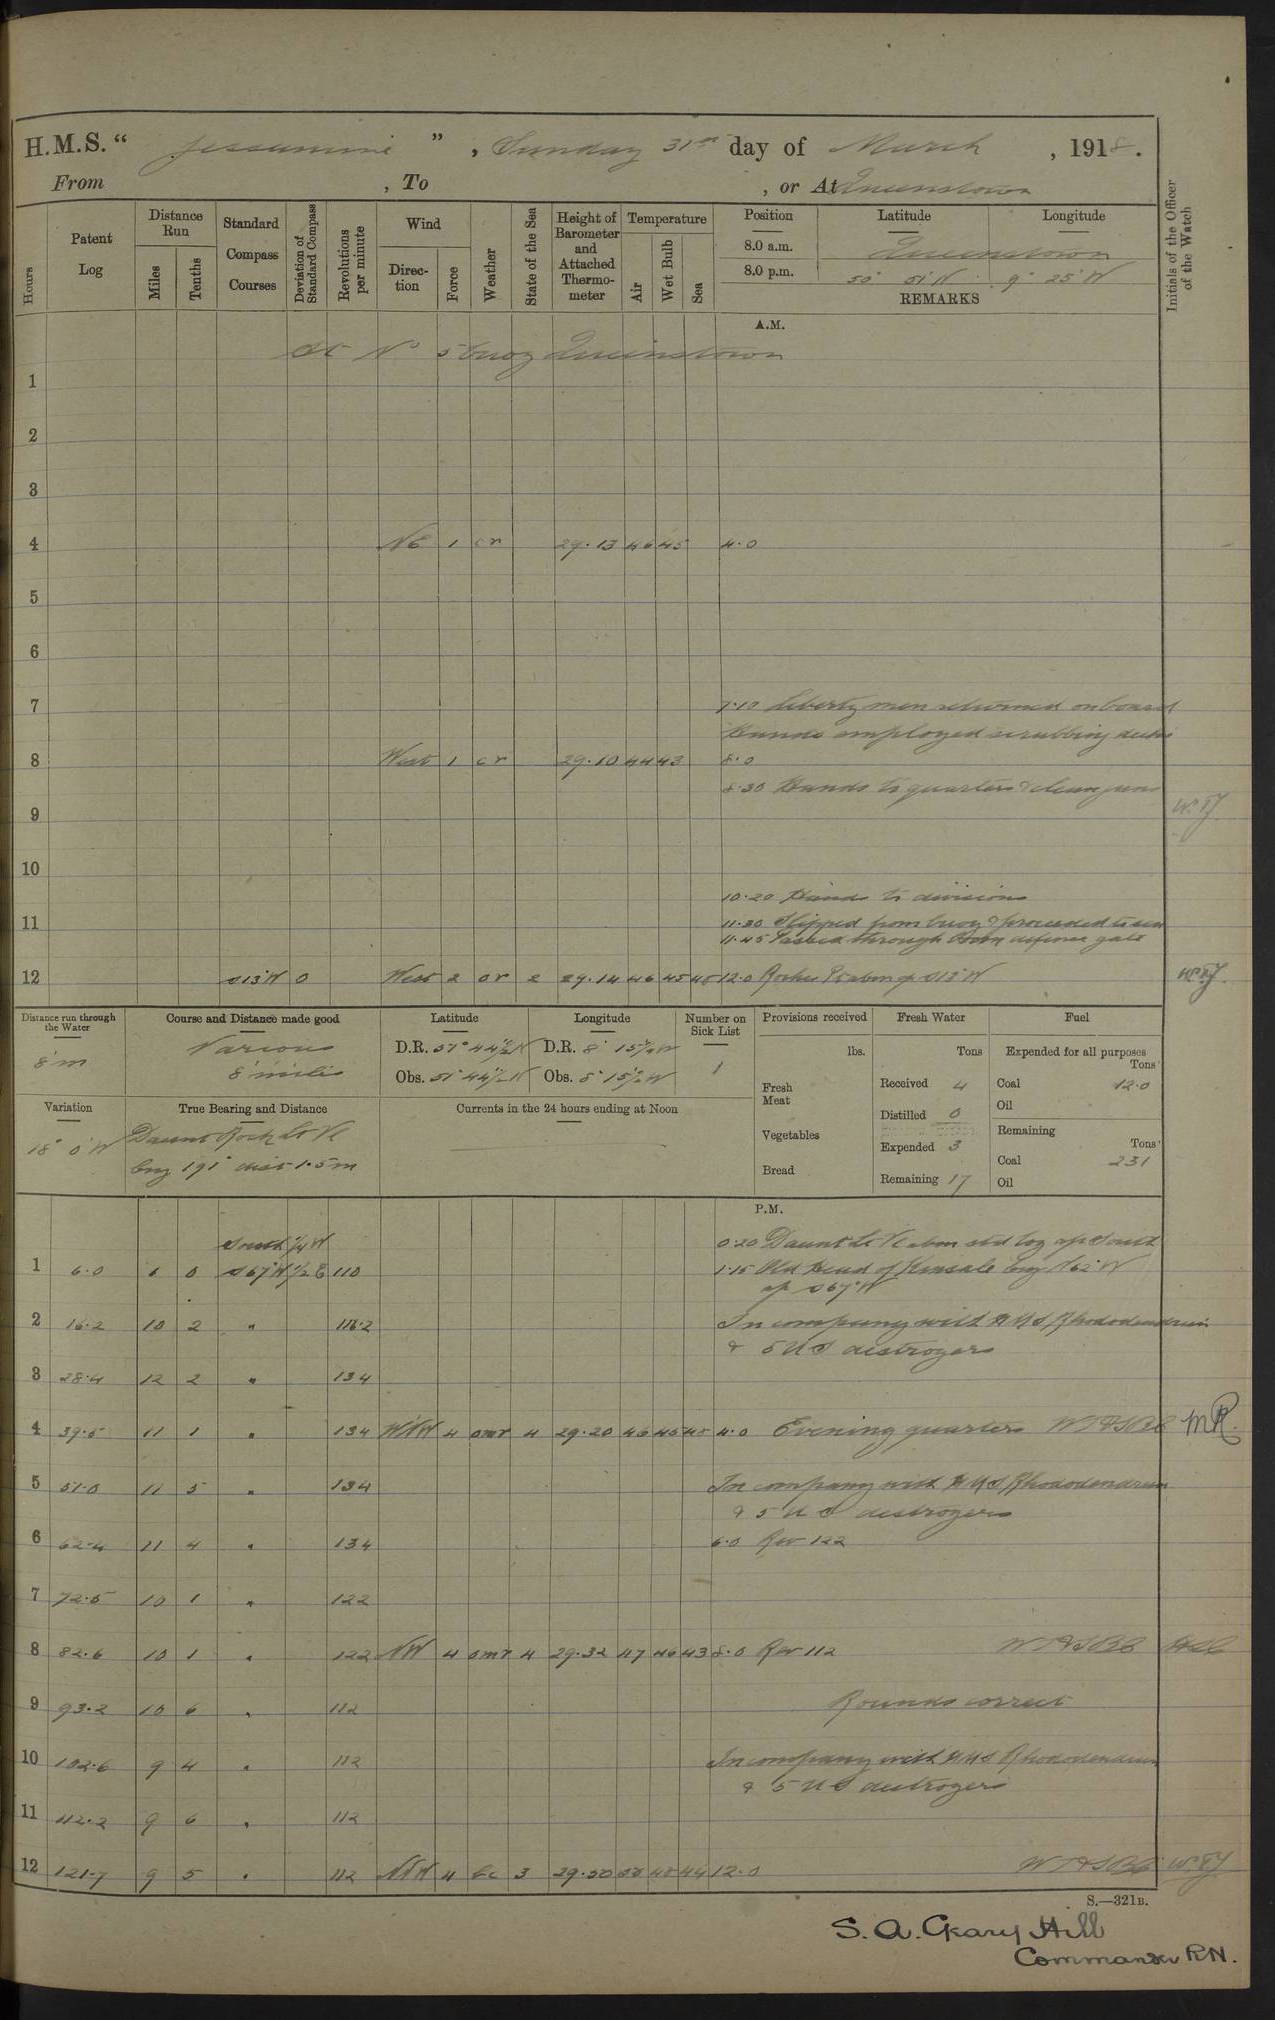 H.M.S. " Jessamine ", Sunday 31st day of March, 1918.
From , To , or At Queenstown
Hours
Patent Log
Distance Run
Miles
Tenths
Standard Compass Courses
Deviation of Standard Compass
Revolutions per minute
Wind
Direction
Force
Weather
State of the Sea
Height of Barometer and Attached Thermometer
Temperature
Air
Wet Bulb
Sea
Position Latitude Longitude
8.0 a.m. Queenstown
8.0 p.m. 50° 51' N 9° 25' W
REMARKS
Initials of the Officer of the Watch
A.M.
At No 5 buoy Queenstown
1
2
3
4 NE 1 cr 29.13 46 45 4.0
5
6
7 7.10 liberty men returned onboard
Hands employed scrubbing decks
8 West 1 cr 29.10 44 43 8.0
8.30 Hands to quarters & clean guns
9
10
10.20 Hands to divisions
11 11.30 Slipped from buoy & proceeded to sea
11.45 Passed through Boom defence gate
12 S13°W 0 West 2 or 2 29.14 46 45 45 12.0 Roches Pt abm s/c S13°W
Distance run through the Water
8'm
Course and Distance made good
Various
8 miles
Latitude
D.R. 51° 44 1/2' N
Obs. 51° 44 1/2' N
Longitude
D.R. 8° 15 1/2' W
Obs. 8° 15 1/2' W
Number on Sick List
1
Provisions received
lbs.
Fresh Meat
Vegetables
Bread
Fresh Water
Tons
Received 4
Distilled 0
Expended 3
Remaining 17
Fuel
Expended for all purposes
Tons
Coal 12.0
Oil
Remaining
Tons
Coal 231
Oil
Variation
18° 0' W
True Bearing and Distance
Daunt Rock Lt Vl
brg 191° dist 1.5 m
Currents in the 24 hours ending at Noon
P.M.
South 1/4 W 0.20 Daunt Lt Vl abm std log a/c South
1 6.0 6 0 S67°W 1/2 E 110 1.15 Old Head of Kinsale brg N62°W
a/c S67°W
2 16.2 10 2 " 116.2 In company with HMS Rhododendron
& 5 US destroyers
3 28.4 12 2 " 134
4 39.5 11 1 " 134 WNW 4 omr 4 29.20 46 45 45 4.0 Evening quarters MR.
5 51.0 11 5 " 134 In company with HMS Rhododendron
& 5 US destroyers
6 62.4 11 4 " 134 6.0 Rev 122
7 72.5 10 1 " 122
8 82.6 10 1 " 122 NW 4 omr 4 29.32 47 46 43 8.0 Rev 112
9 93.2 10 6 " 112 Rounds correct
10 102.6 9 4 " 112 In company with HMS Rhododendron
& 5 US destroyers
11 112.2 9 6 " 112
12 121.7 9 5 " 112 NNW 4 bc 3 29.50 50 48 44 12.0
S.—321B.
S. A. Geary Hill
Commander RN.